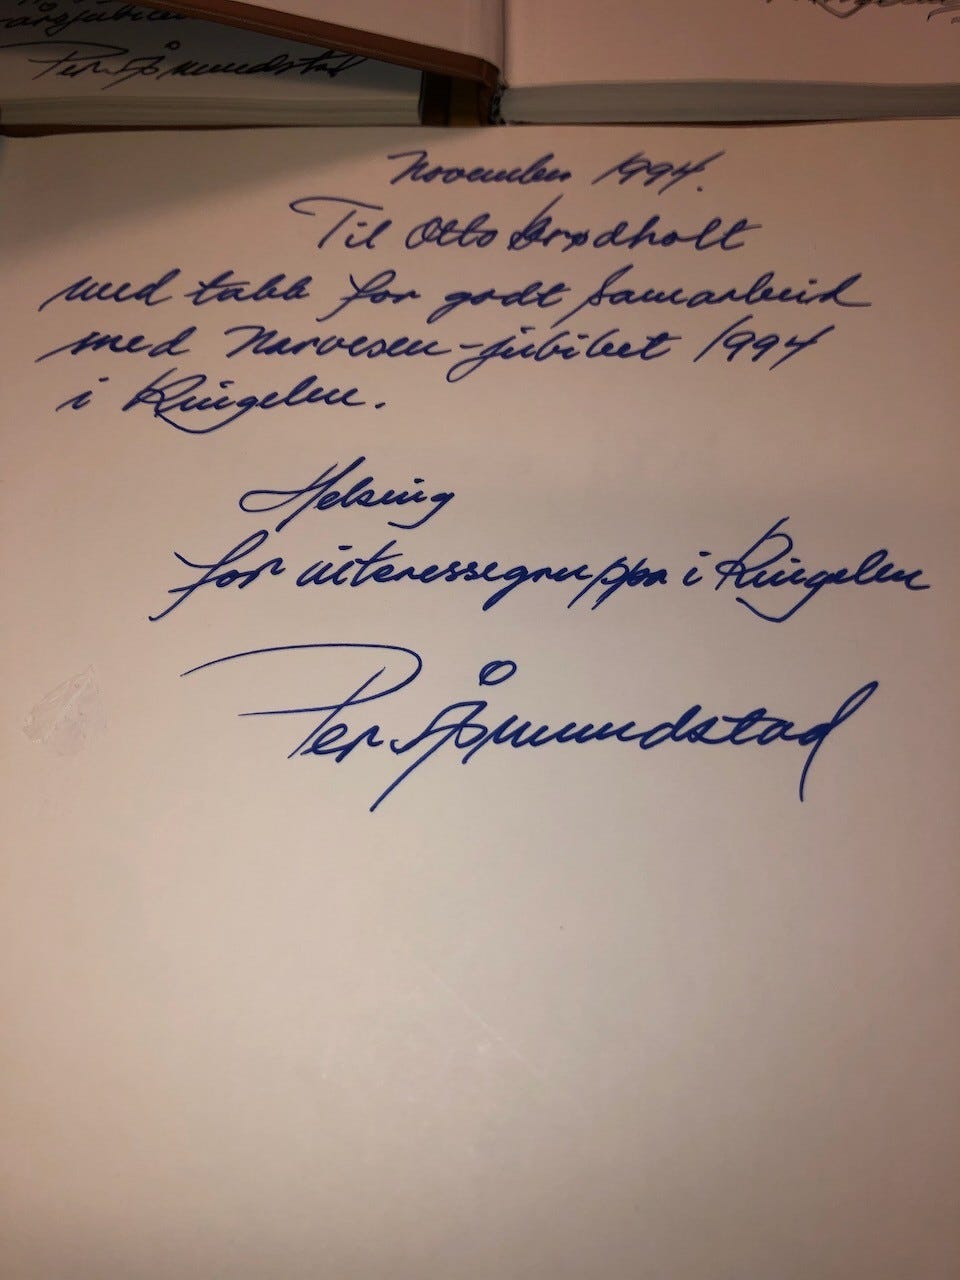 årsjubileet
Per Åsmundstad
November 1994.
Til Otto Brødholt
med takk for godt samarbeid
med Narvesen-jubileet 1994
i Ringelen.
Helsing
for interessegruppa i Ringelen
Per Åsmundstad